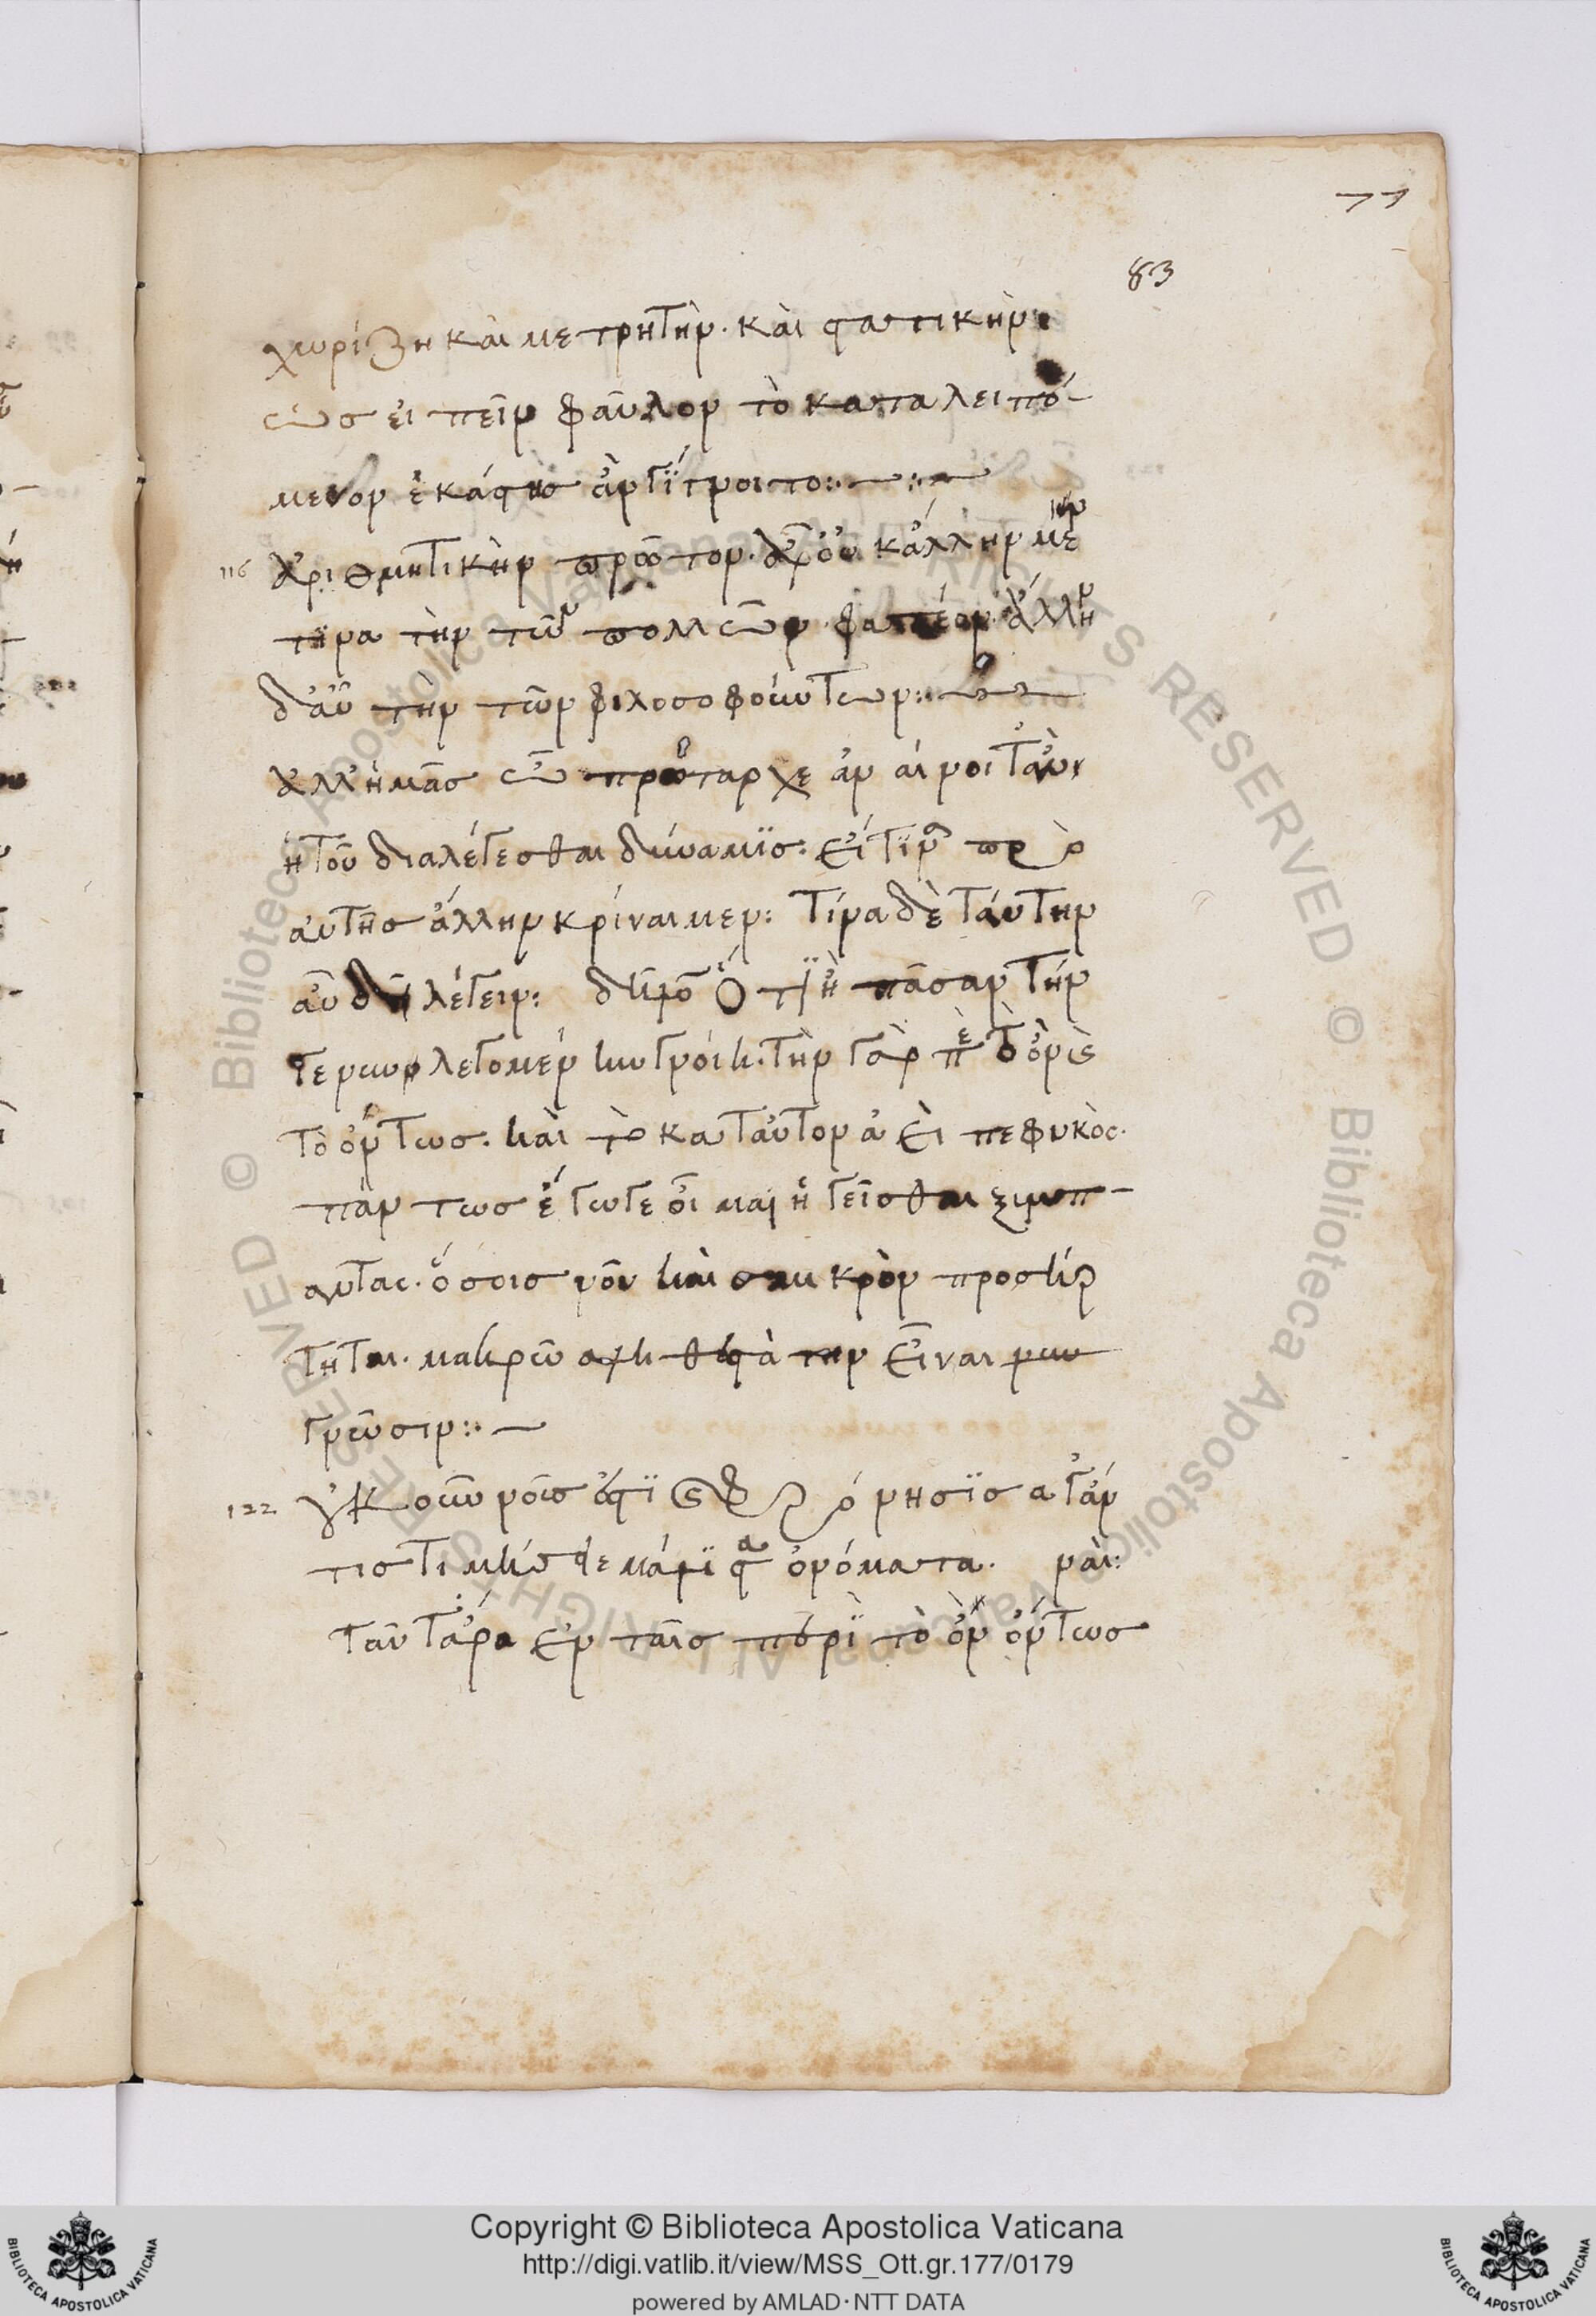 71
83
χωρίζη καὶ μετρητὴν. καὶ στατικὴν:
ὡς εἰπεῖν φαῦλον τὸ καταλειπό-
μενον ἑκάστης ἂν γίγνοιτο:
116 ἀριθμητικὴν πρῶτον. ἆρ οὐκ ἄλλην μέν
τινα τὴν τῶν πολλῶν φατέον. ἄλλην
δ' αὖ τὴν τῶν φιλοσοφούντων:
ἀλλ' ἡμᾶς ὦ πρώταρχε ἀναίνοιτ' ἂν
ἡ τοῦ διαλέγεσθαι δύναμις: εἴ τινα πρὸ
αὐτῆς ἄλλην κρίναιμεν: Τίνα δὲ ταύτην
αὖ δεῖ λέγειν: δῆλον ὅτι ἢ πᾶσαν τήν
γε νῦν λεγομένην γνοίη. τὴν γὰρ περὶ τὸ ὂν καὶ
τὸ ὄντως. καὶ τὸ κατὰ ταυτὸν ἀεὶ πεφυκὸς.
πάντως ἔγωγε οἶμαι ἡγεῖσθαι ξύμπ-
αντας. ὅσοις νοῦ καὶ σμικρὸν προσήρ
τηται. μακρῶ ἀληθεστάτην εἶναι γνῶ
γνῶσιν:
122 οὐκοῦν νοῦς ἐστὶ καὶ φρόνησις ἅ γ' ἄν
τις τιμήσειε μάλιστα ὀνόματα. ναί:
ταῦτ' ἄρα ἐν ταῖς περὶ τὸ ὂν ὄντως
Copyright © Biblioteca Apostolica Vaticana
http://digi.vatlib.it/view/MSS_Ott.gr.177/0179
powered by AMLAD·NTT DATA
BIBLIOTECA APOSTOLICA VATICANA
BIBLIOTECA APOSTOLICA VATICANA